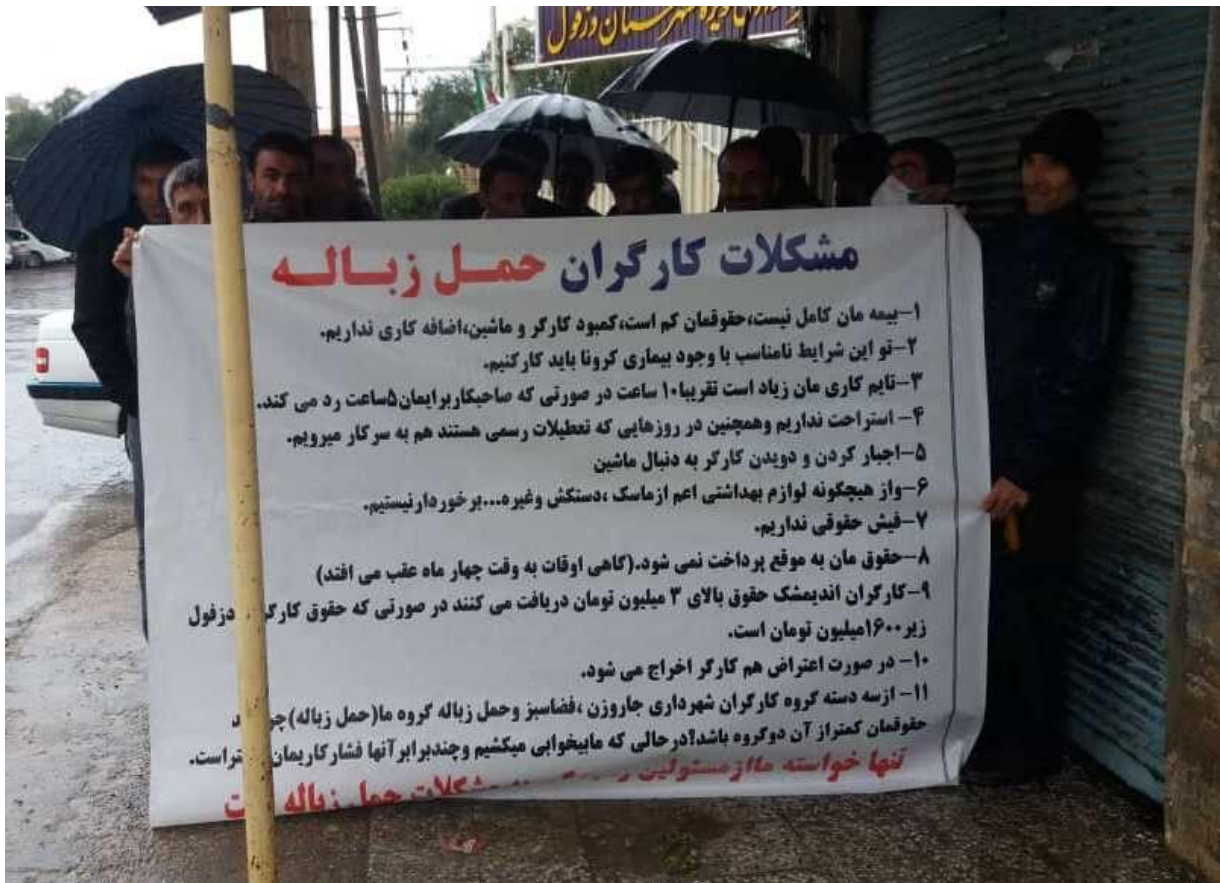 ویژه شهرستان دزفول
مشکلات کارگران حمل زباله
۱-بیمه مان کامل نیست،حقوقمان کم است،کمبود کارگر و ماشین،اضافه کاری نداریم.
۲-تو این شرایط نامناسب با وجود بیماری کرونا باید کارکنیم.
۳-تایم کاری مان زیاد است تقریبا۱۰ ساعت در صورتی که صاحبکاربرایمان۵ساعت رد می کند.
۴- استراحت نداریم وهمچنین در روزهایی که تعطیلات رسمی هستند هم به سرکار میرویم.
۵-اجبار کردن و دویدن کارگر به دنبال ماشین
۶-واز هیچگونه لوازم بهداشتی اعم ازماسک ،دستکش وغیره...برخوردارنیستیم.
۷-فیش حقوقی نداریم.
۸-حقوق مان به موقع پرداخت نمی شود.(گاهی اوقات به وقت چهار ماه عقب می افتد)
۹-کارگران اندیمشک حقوق بالای ۳ میلیون تومان دریافت می کنند در صورتی که حقوق دزفول
زیر۱۶۰۰میلیون تومان است.
۱۰- در صورت اعتراض هم کارگر اخراج می شود.
۱۱- ازسه دسته گروه کارگران شهرداری جاروزن ،فضاسبز وحمل زباله گروه ما(حمل زباله)
حقوقمان کمتراز آن دوگروه باشد؟درحالی که مابیخوابی میکشیم وچندبرابرآنها فشارکاریمان
تنها خواسته ماازمسئولین مشکلات حمل زباله